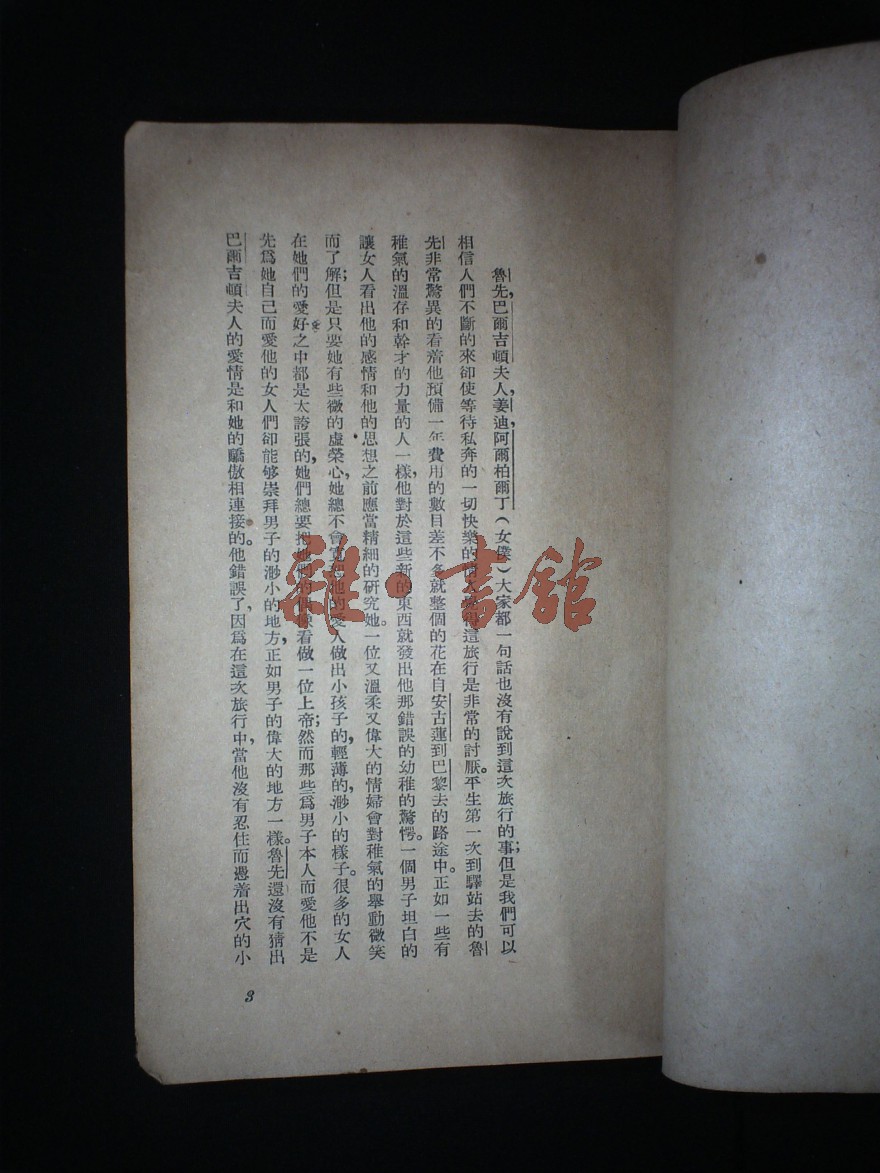 魯先，巴爾吉頓夫人，姜迪，阿爾柏爾丁（女僕）大家都一句話也沒有說到這次旅行的事；但是我們可以
相信人們不斷的來卻使等待私奔的一切快樂的情人覺得這旅行是非常的討厭。平生第一次到驛站去的魯
先非常驚異的看着他預備一年費用的數目差不多就整個的花在自安古蓮到巴黎去的路途中。正如一些有
稚氣的溫存和幹才的力量的人一樣，他對於這些新的東西就發出他那錯誤的幼稚的驚愕。一個男子坦白的
讓女人看出他的感情和他的思想之前應當精細的研究她。一位又溫柔又偉大的情婦會對稚氣的舉動微笑
而了解；但是只要她有些微的虛榮心，她總不會寬恕她的愛人做出小孩子的，輕薄的，渺小的樣子。很多的女人
在她們的愛好之中都是太誇張的，她們總要把她們的偶像看做一位上帝；然而那些爲男子本人而愛他不是
先爲她自己而愛他的女人們卻能够崇拜男子的渺小的地方，正如男子的偉大的地方一樣。魯先還沒有猜出
巴爾吉頓夫人的愛情是和她的驕傲相連接的。他錯誤了，因爲在這次旅行中，當他沒有忍住而憑着出穴的小
3
雜·書館